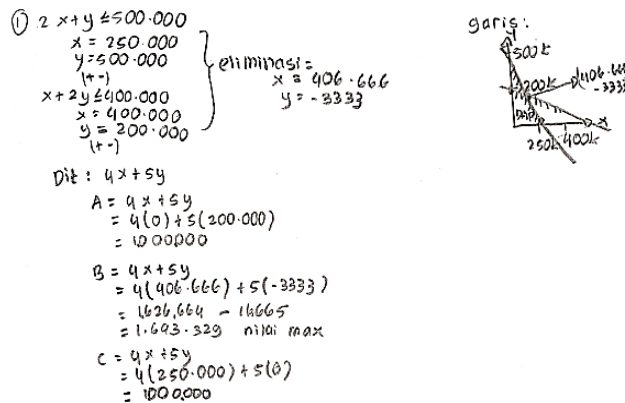 ① 2x+y≤500.000
x = 250.000
y=500.000
(+-)
x+2y≤400.000
x=400.000
y= 200.000
(+-)
eliminasi=
x = 406.666
y = -3333
garis:
y
500k
200k
(406.666
-3333
DHP
x
250k 400k
Dit: 4x+5y
A= 4x+5y
= 4(0)+5(200.000)
= 1000000
B = 4x+5y
= 4(406.666)+5(-3333)
= 1,626,664 - 16665
= 1.693.329 nilai max
C = 4x+5y
= 4(250.000)+5(0)
= 1000,000